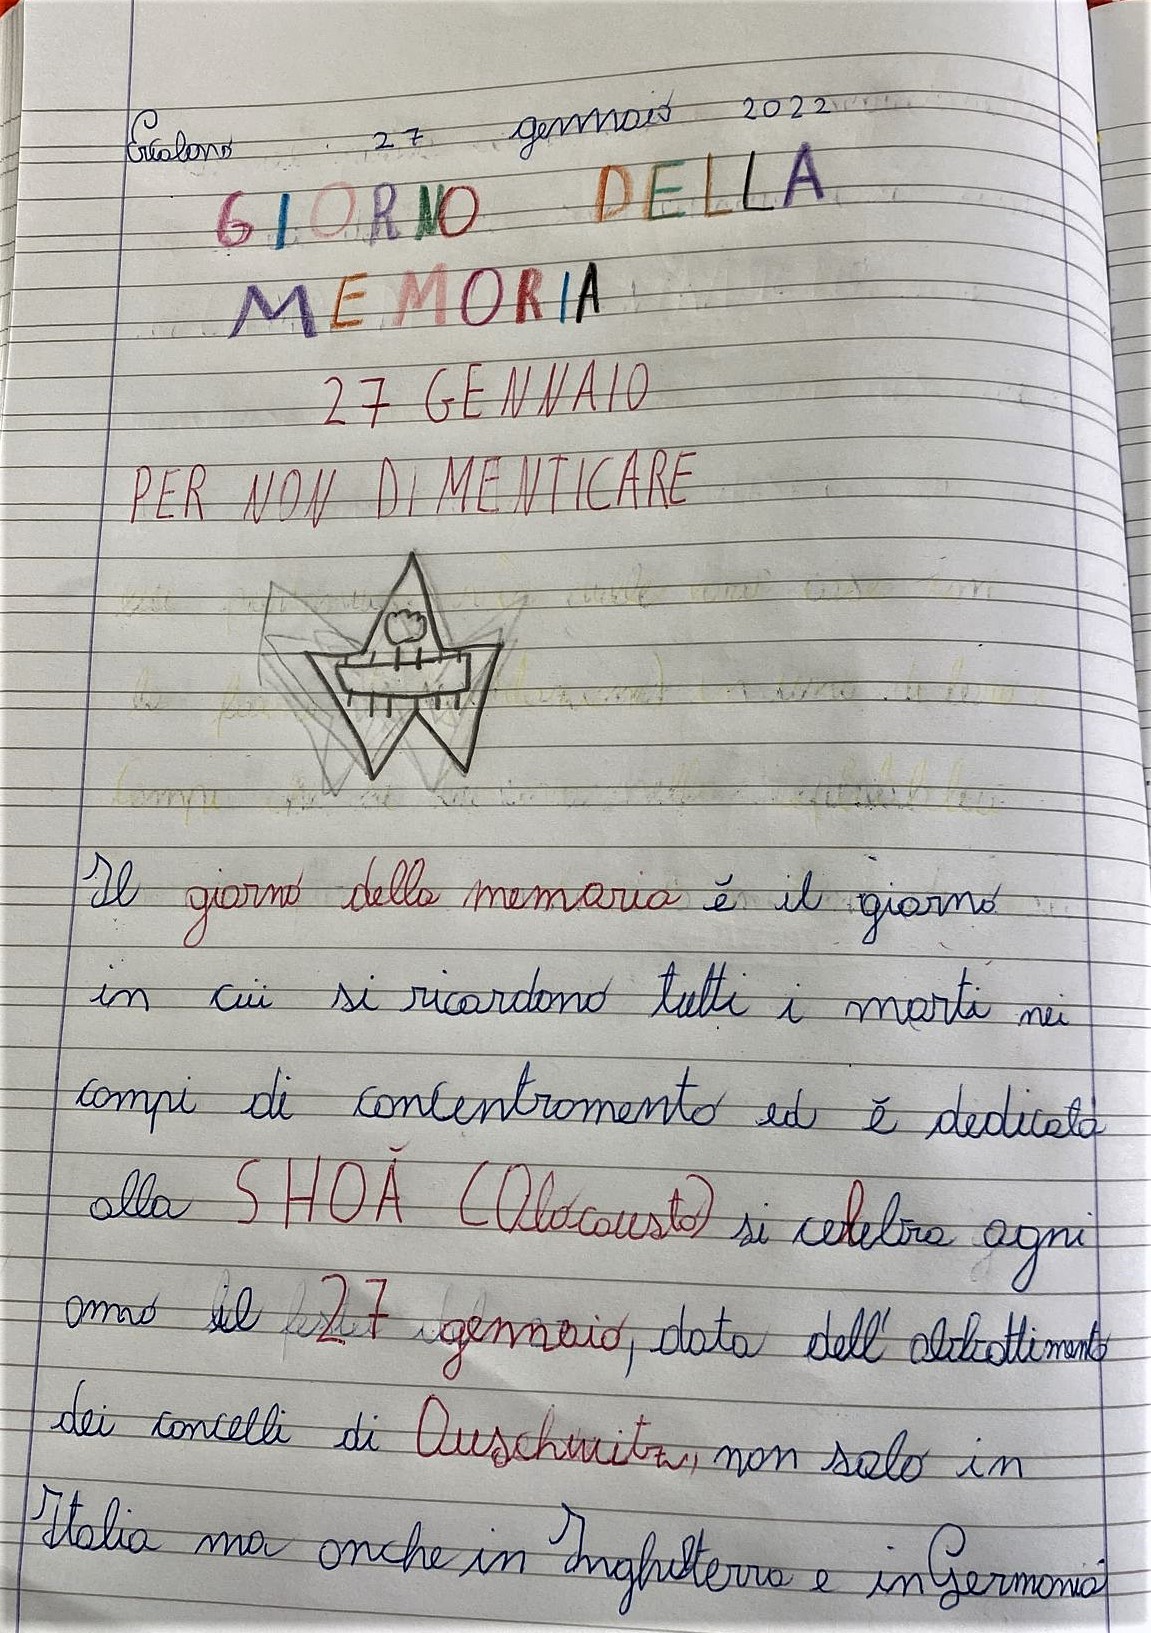 Ercolano 27 gennaio 2022
GIORNO DELLA
MEMORIA
27 GENNAIO
PER NON DIMENTICARE
Il giorno della memoria è il giorno
in cui si ricordono tutti i morti nei
campi di concentramento ed è dedicata
alla SHOÀ (Olocausto) si celebra ogni
anno il 27 gennaio, data dell' abbattimento
dei cancelli di Auschwitz, non solo in
Italia ma anche in Inghilterra e in Germania